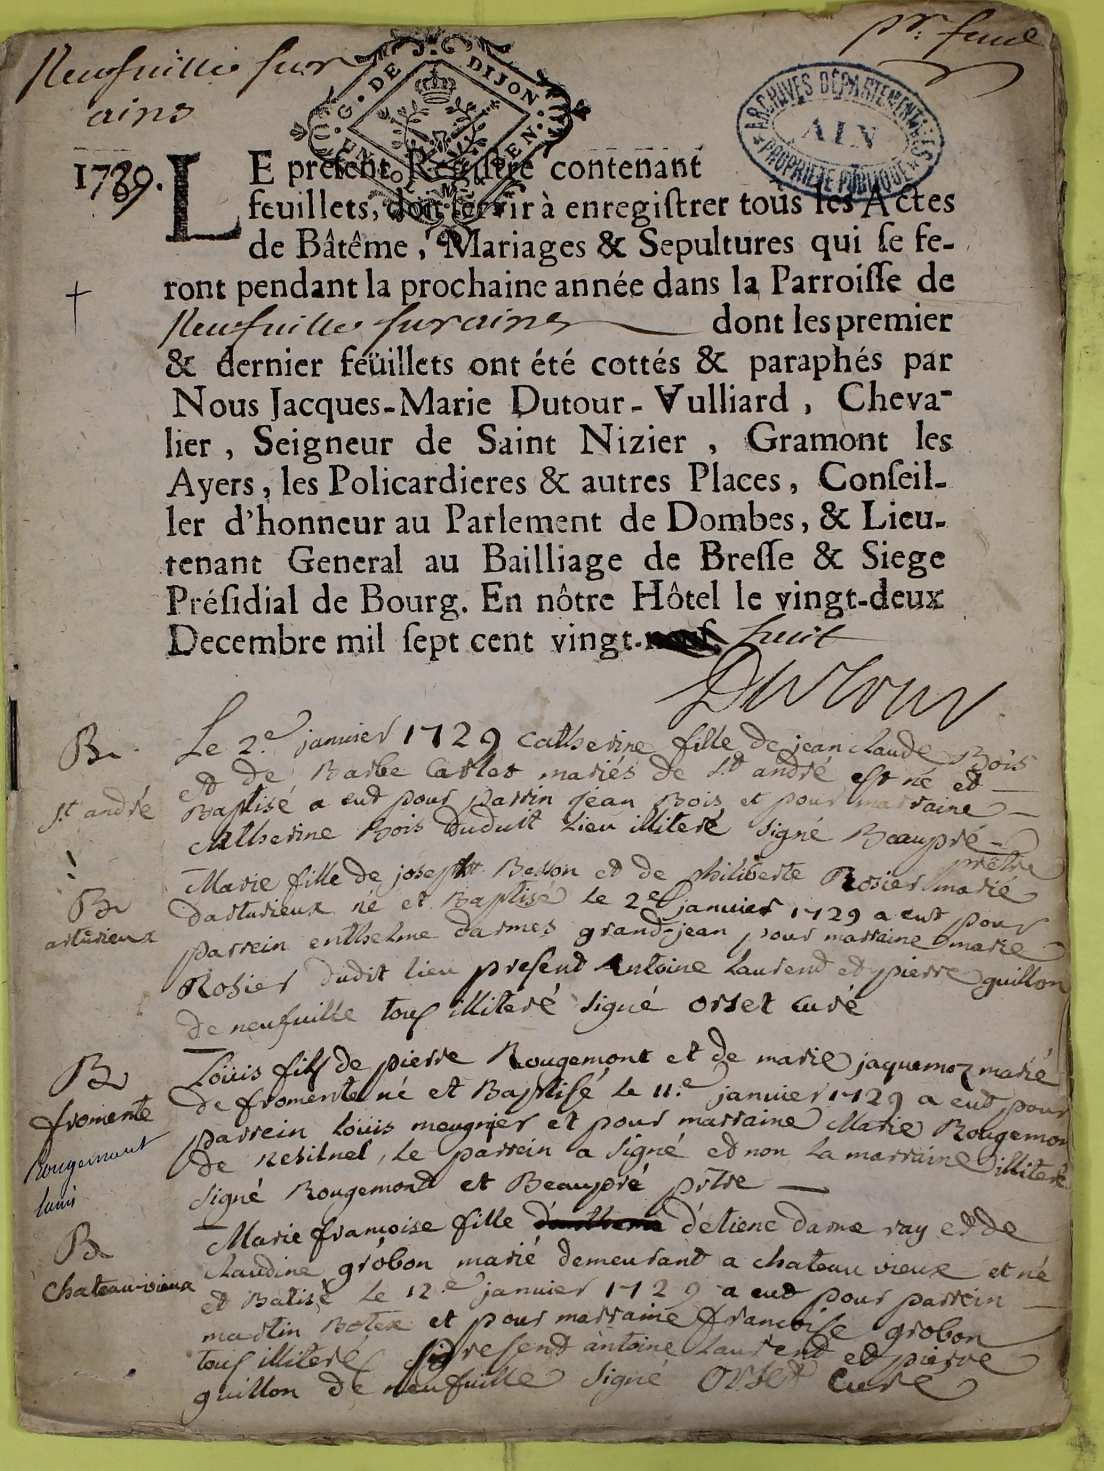 Neufville sur
ains
pr. feuil
G. DE DIJON
ARCHIVES DÉPARTEMENTALES
AIN
PROPRIÉTÉ PUBLIQUE
1729.
LE preſent Regiſtre contenant
feuillets, doit ſervir à enregiſtrer tous les Actes
de Bâtême, Mariages & Sepultures qui ſe fe-
ront pendant la prochaine année dans la Parroiſſe de
Neufville ſur ains dont les premier
& dernier feüillets ont été cottés & paraphés par
Nous Jacques-Marie Dutour-Vulliard, Cheva-
lier, Seigneur de Saint Nizier, Gramont les
Ayers, les Policardieres & autres Places, Conſeil-
ler d'honneur au Parlement de Dombes, & Lieu-
tenant General au Bailliage de Breſſe & Siege
Préſidial de Bourg. En nôtre Hôtel le vingt-deux
Decembre mil ſept cent vingt-huit
Dutour
B
St andré
Le 2.e janvier 1729 Catherine fille de jean claude Bois
et de Barbe Carlot mariés de St andré est né et
Baptisé a eut pour parrin jean Bois et pour marraine
Catherine Bois dudutt Lieu illiteré signé Beaupré
prêtre
B
arturieux
Marie fille de joseph Besson et de philiberte Rosier marié
darturieux né et Baptisé le 2e janvier 1729 a eut pour
parrein enthelme darmes grand-jean pour marraine marie
Rosier dudit lieu present Antoine Laurend et pierre guillon
de neufville tous illiteré signé orset curé
B
fromente
Rougemont
Louis
Loüis fils de pierre Rougemont et de marie jaquemoz marié
de fromente né et Baptisé le 11.e janvier 1729 a eut pour
parrein Loüis meugnier et pour marraine Marie Rougemon
de Resilnel, le parrein a signé et non la marraine illiteré
signé Rougemont et Beaupré prtre
B
Chateau-vieux
Marie françoise fille d'etiene dame ray et de
Claudine grobon marié demeurant a chateau vieux et né
et Batisé le 12.e janvier 1729 a eut pour parrein
martin Botex et pour marraine francoise grobon
tous illiteres present antoine Laurend et pierre
guillon de neufville signé Orset curé